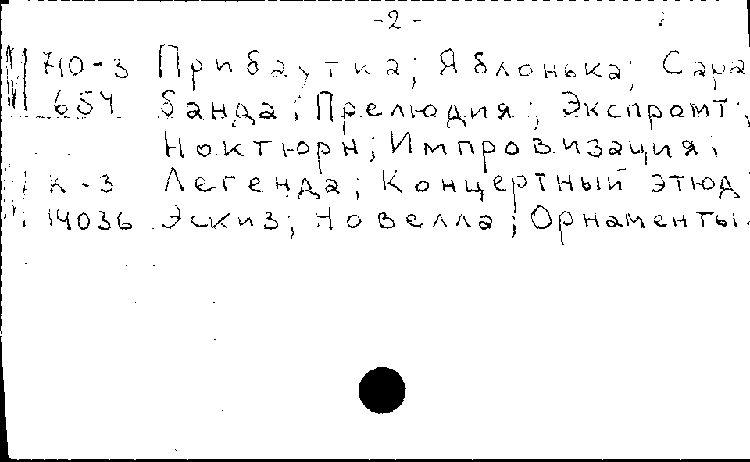 -2-
710-3 Прибаутка; Яблонька; Сара
654 банда; Прелюдия; Экспромт;
Ноктюрн; Импровизация;
К-3 Легенда; Концертный этюд
14036 Эскиз; Новелла; Орнаменты.